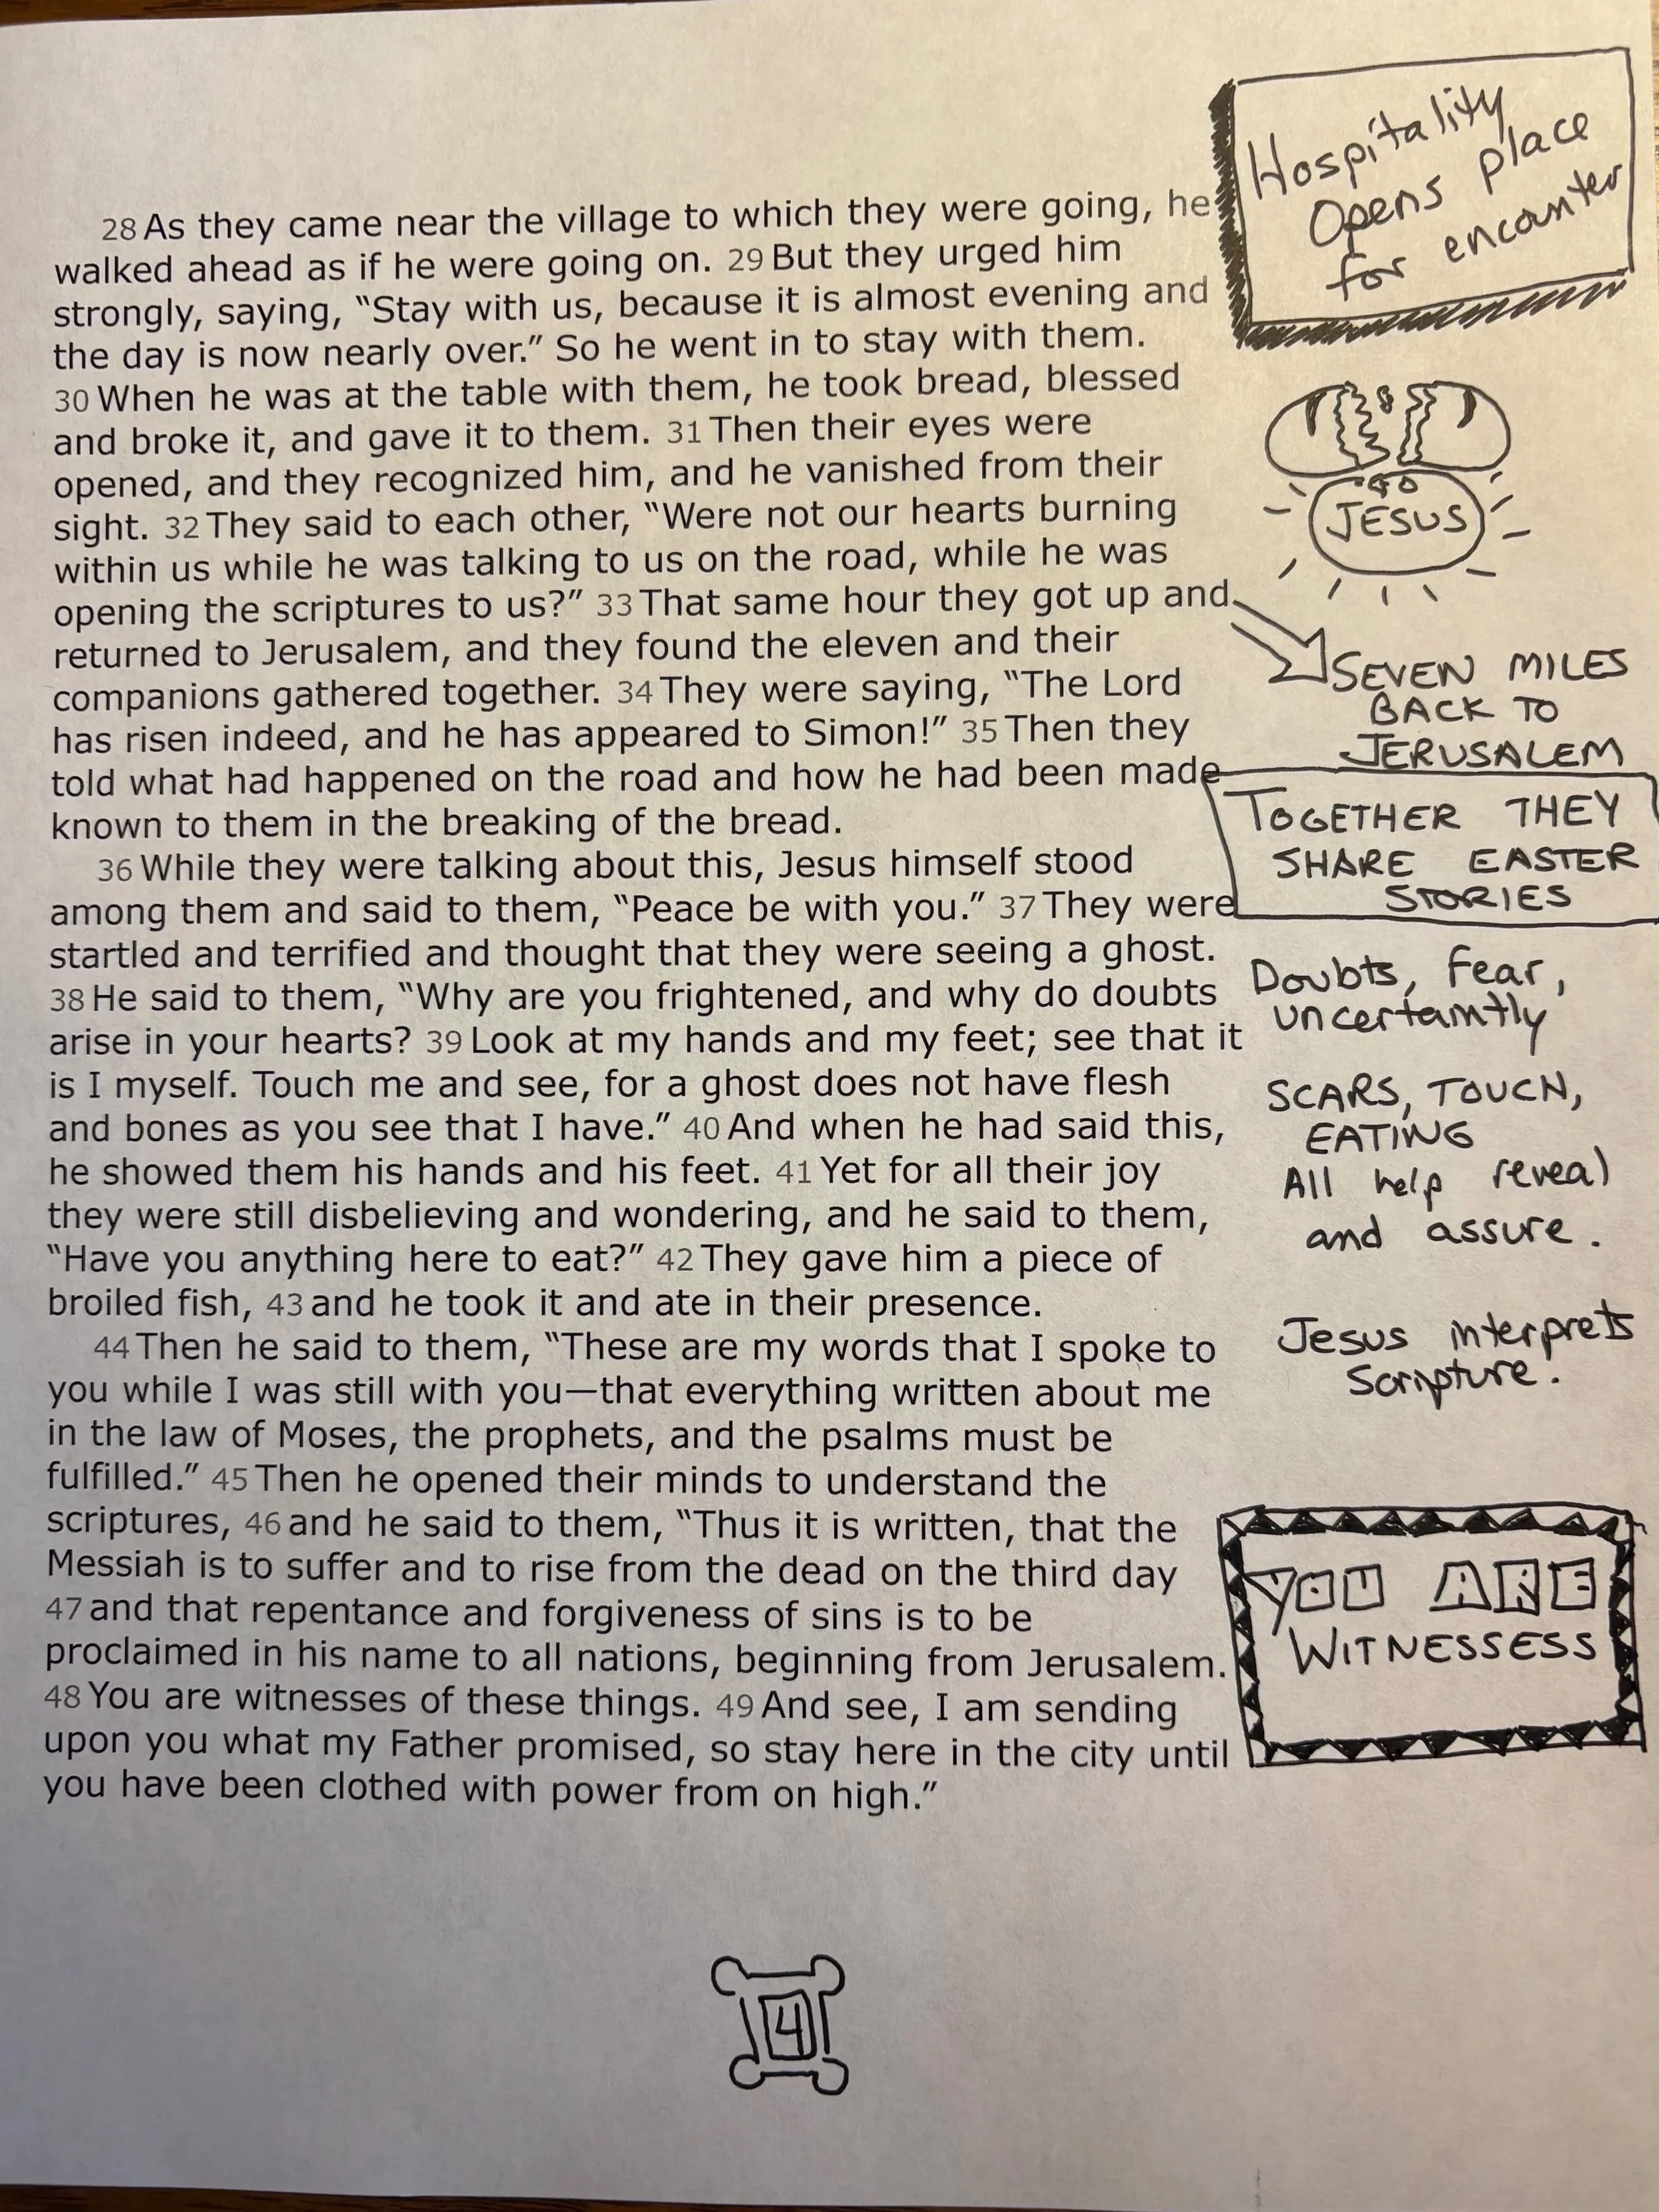 28 As they came near the village to which they were going, he
walked ahead as if he were going on. 29 But they urged him
strongly, saying, “Stay with us, because it is almost evening and
the day is now nearly over.” So he went in to stay with them.
30 When he was at the table with them, he took bread, blessed
and broke it, and gave it to them. 31 Then their eyes were
opened, and they recognized him, and he vanished from their
sight. 32 They said to each other, “Were not our hearts burning
within us while he was talking to us on the road, while he was
opening the scriptures to us?” 33 That same hour they got up and
returned to Jerusalem, and they found the eleven and their
companions gathered together. 34 They were saying, “The Lord
has risen indeed, and he has appeared to Simon!” 35 Then they
told what had happened on the road and how he had been made
known to them in the breaking of the bread.
36 While they were talking about this, Jesus himself stood
among them and said to them, “Peace be with you.” 37 They were
startled and terrified and thought that they were seeing a ghost.
38 He said to them, “Why are you frightened, and why do doubts
arise in your hearts? 39 Look at my hands and my feet; see that it
is I myself. Touch me and see, for a ghost does not have flesh
and bones as you see that I have.” 40 And when he had said this,
he showed them his hands and his feet. 41 Yet for all their joy
they were still disbelieving and wondering, and he said to them,
“Have you anything here to eat?” 42 They gave him a piece of
broiled fish, 43 and he took it and ate in their presence.
44 Then he said to them, “These are my words that I spoke to
you while I was still with you—that everything written about me
in the law of Moses, the prophets, and the psalms must be
fulfilled.” 45 Then he opened their minds to understand the
scriptures, 46 and he said to them, “Thus it is written, that the
Messiah is to suffer and to rise from the dead on the third day
47 and that repentance and forgiveness of sins is to be
proclaimed in his name to all nations, beginning from Jerusalem.
48 You are witnesses of these things. 49 And see, I am sending
upon you what my Father promised, so stay here in the city until
you have been clothed with power from on high.”
Hospitality
Opens place
for encounter
JESUS
SEVEN MILES
BACK TO
JERUSALEM
TOGETHER THEY
SHARE EASTER
STORIES
Doubts, Fear,
uncertaintly
SCARS, TOUCH,
EATING
All help reveal
and assure.
Jesus interprets
Scripture.
YOU ARE
WITNESSESS
4